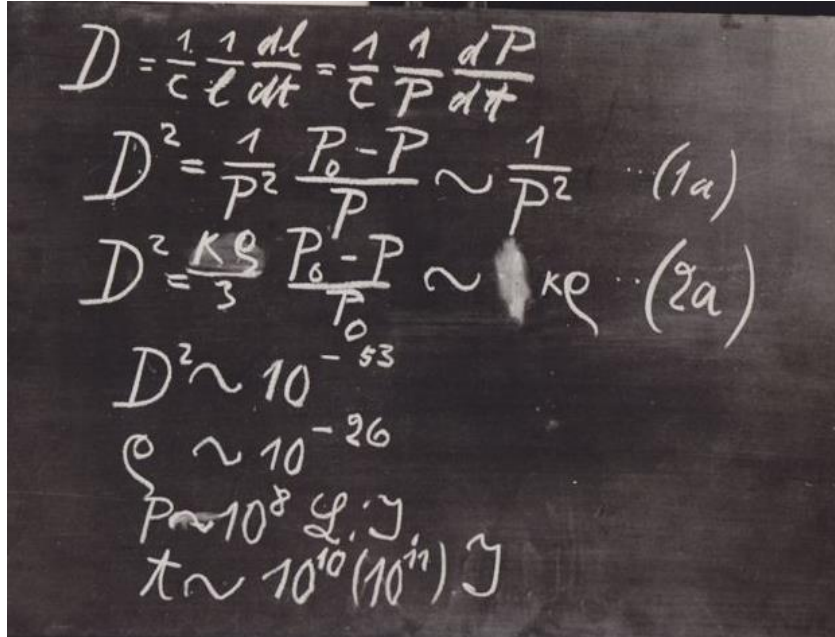 D = 1/c 1/l dl/dt = 1/c 1/P dP/dt
D² = 1/P² (P₀-P)/P ~ 1/P² ··(1a)
D² = κϱ/3 (P₀-P)/P₀ ~ κϱ ··(2a)
D² ~ 10⁻⁵³
ϱ ~ 10⁻²⁶
P ~ 10⁸ L.J.
t ~ 10¹⁰(10¹¹) J